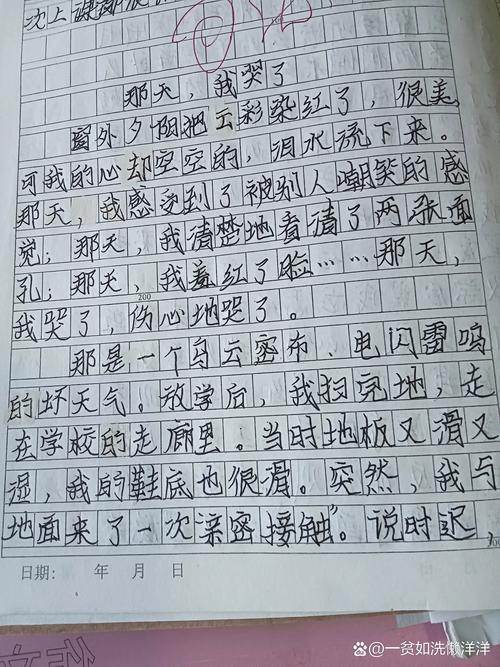 次上课
那天，我哭了
窗外夕阳把云彩染红了，很美，
可我的心却空空的，泪水流下来。
那天，我感受到了被别人嘲笑的感
觉；那天，我清楚地看清了两张面
孔；那天，我羞红了脸……那天，
200
我哭了，伤心地哭了。
那是一个乌云密布、电闪雷鸣
的坏天气。放学后，我扫完地，走
在学校的走廊里。当时地板又滑又
湿，我的鞋底也很滑。突然，我与
地面来了一次“亲密接触”。说时迟，
日期： 年 月 日
作文
@一贫如洗懒洋洋